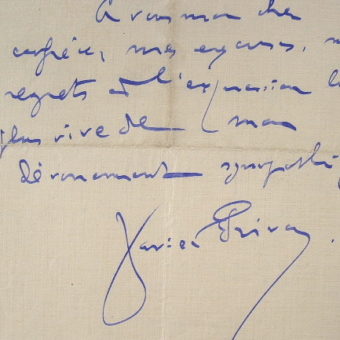 A vous mon cher
confrère, mes excuses, m
regrets et l'expression l
plus vive de mon
dévouement sympathi
Xavier Privas